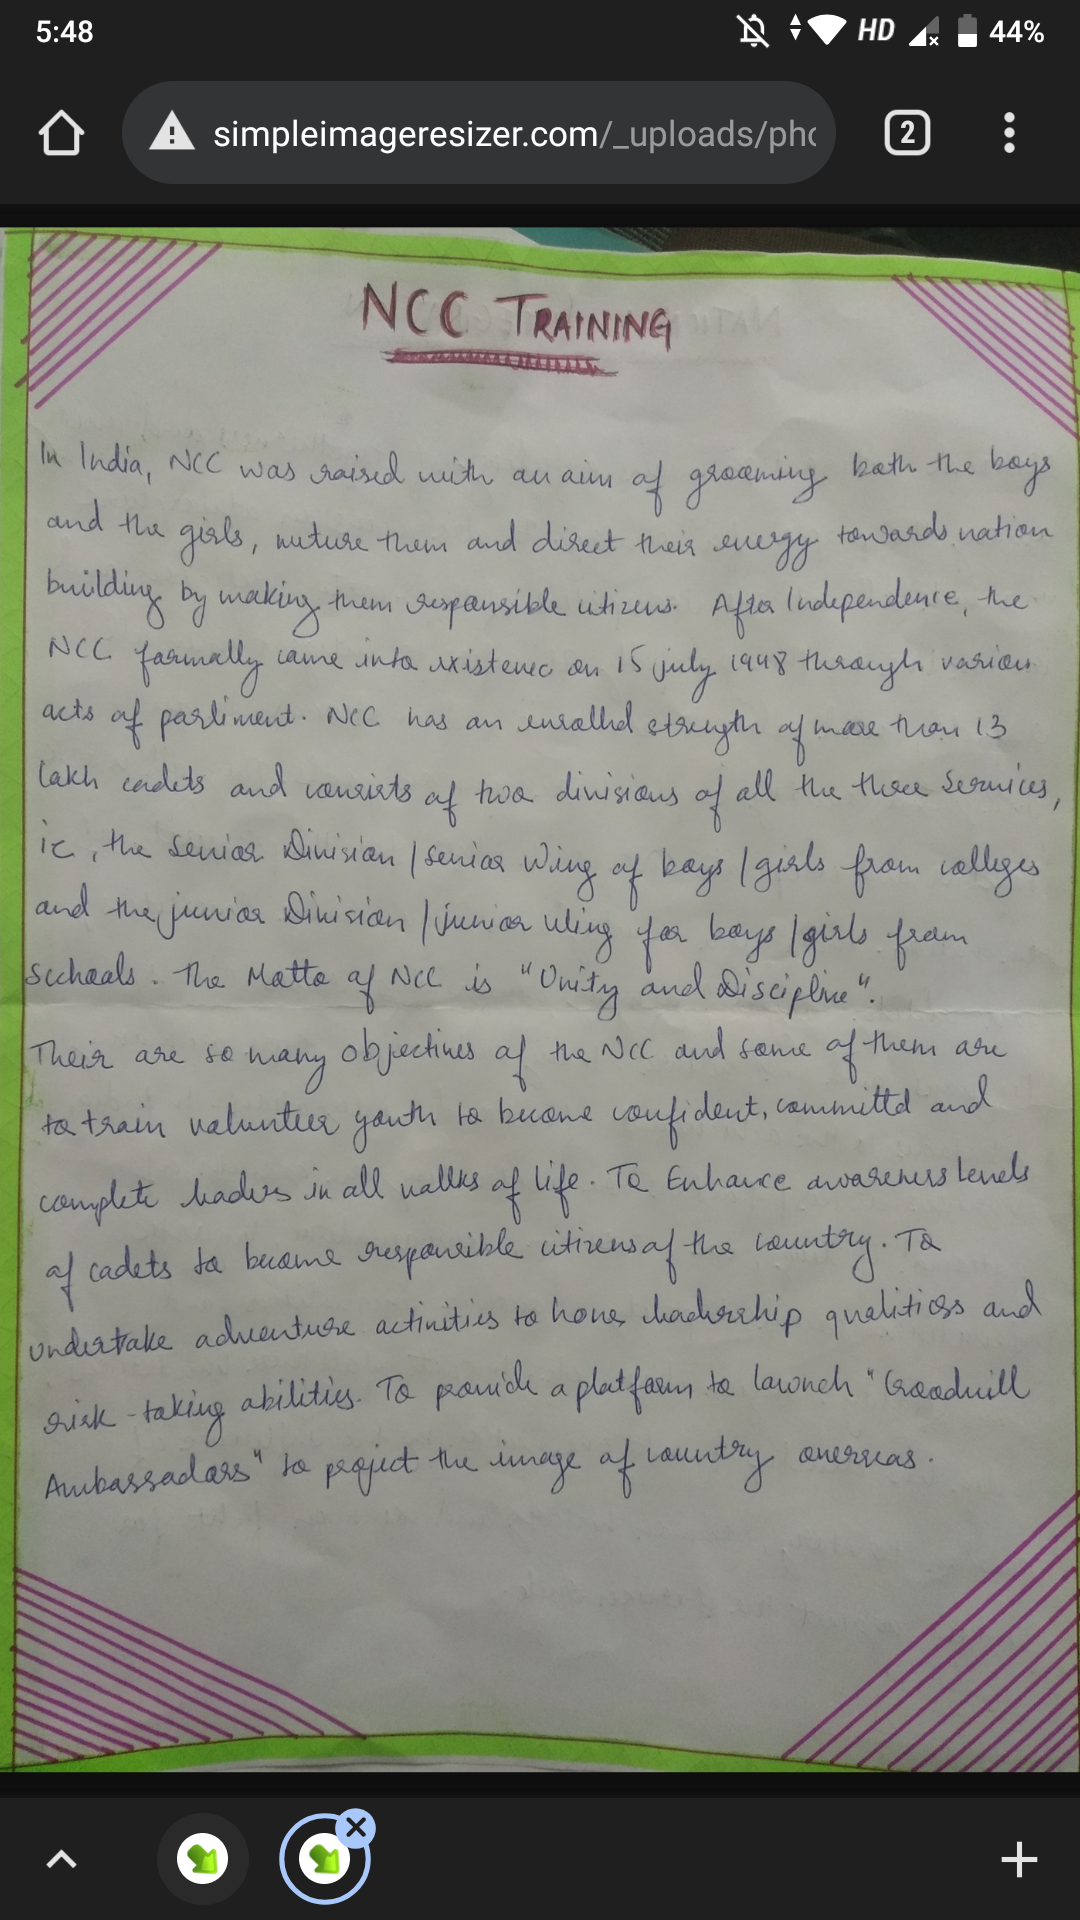 5:48
HD
44%
simpleimageresizer.com/_uploads/pho
2
NCC TRAINING
In India, NCC was raised with an aim of grooming both the boys
and the girls, nuture them and direct their energy towards nation
building by making them responsible citizens. After Independence, the
NCC formally came into existence on 15 july 1948 through various
acts of parliment. NCC has an enrolled strength of more than 13
lakh cadets and consists of two divisions of all the three Services,
ie, the Senior Division / senior Wing of boys / girls from colleges
and the junior Division / junior Wing for boys / girls from
Schools. The Motto of NCC is "Unity and Discipline".
Their are so many objectives of the NCC and some of them are
to train volunteer youth to become confident, committd and
complete leaders in all walks of life. To Enhance awareness levels
of cadets to become responsible citizens of the country. To
undertake adventure activities to hone leadership qualities and
risk-taking abilities. To provide a platform to launch "Goodwill
Ambassadors" to project the image of country overseas.